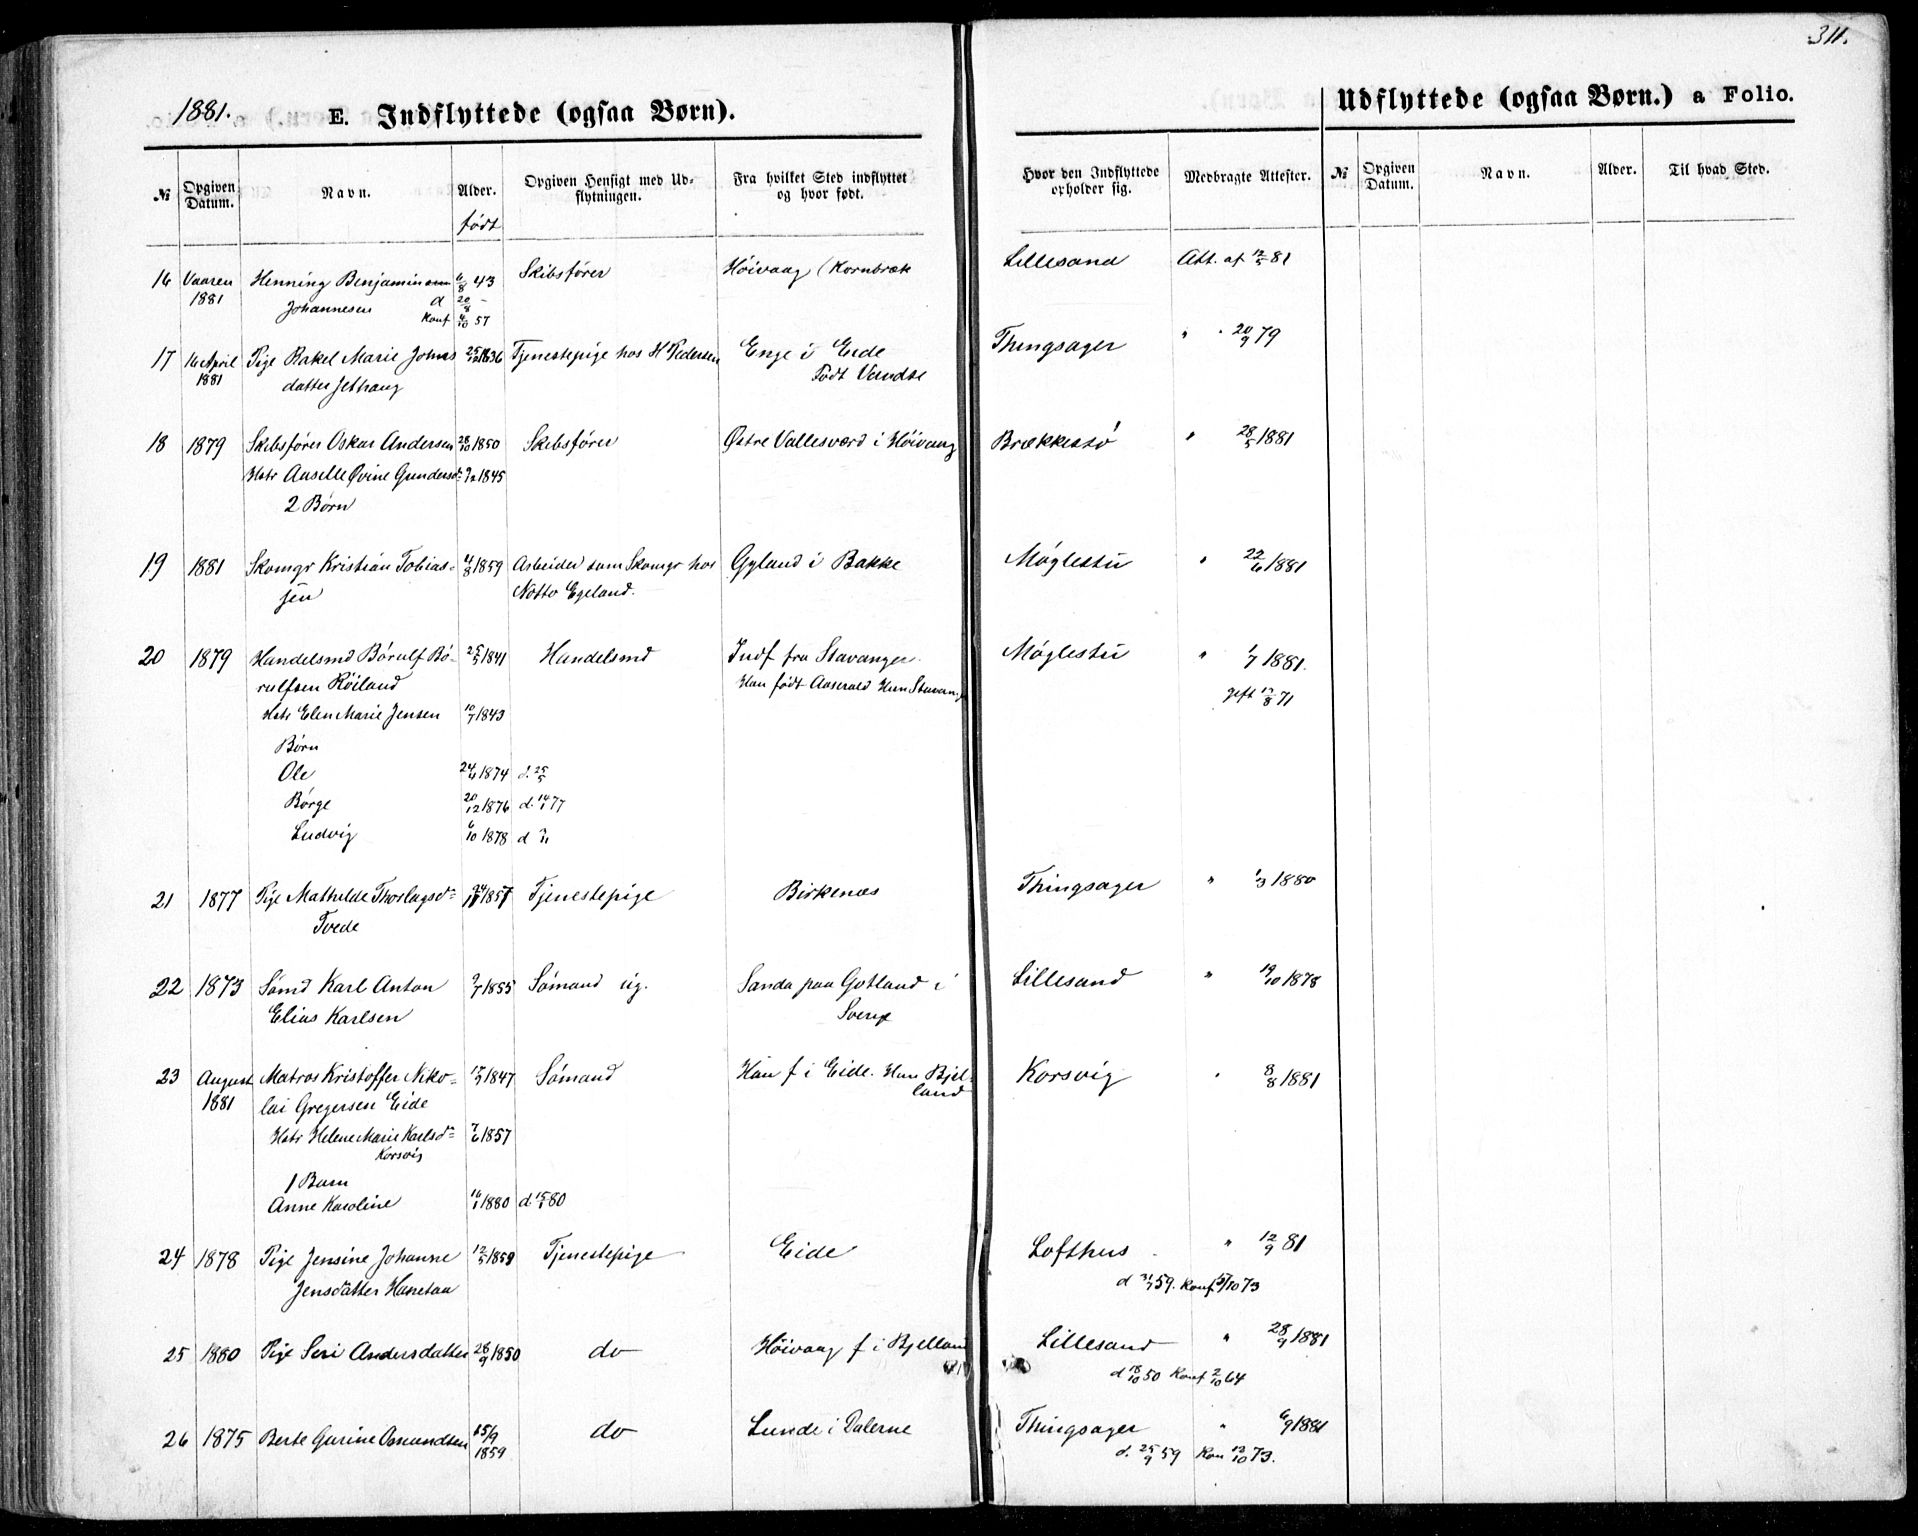 311.
1881.
E. Indflyttede (ogsaa Børn).
Udflyttede (ogsaa Børn.) a Folio.
№ Opgiven Datum. Navn. Alder. Opgiven Hensigt med Udflytningen. Fra hvilket Sted indflyttet og hvor født. Hvor den Indflyttede opholder sig. Medbragte Attester. № Opgiven Datum. Navn. Alder. Til hvad Sted.
født
16 Vaaren Henning Benjamin 6/8 43 Skibsfører Høivaag (Kornbræk Lillesand Att. af 12/5 81
1881 Johannesen d 20/8 –
Konf 4/10 57
17 16 April Pige Rakel Marie Johns 1836 Tjenestepige hos H Pedersen Enge i Eide Thingsager " " 20/9 79
1881 datter Født Vandse
18 1879 Skibsfører Oskar Andersen 28/10 1850 Skibsfører Østre Vallesværd i Høivaag Brækkestø " 28/5 1881
Hstr Øvine Gundersd= 1845
2 Børn
19 1881 Skomgr Kristian Tobias= 4/8 1859 Arbeider som Skomgr hos Gyland i Bakke Møglestu " 22/6 1881
sen Notto Egeland.
20 1879 Handelsmd Børulf Bø- 25/5 1841 Handelsmd Indf fra Stavanger Møglestu " 1/7 1881.
rulfsen Røiland Han født Aaserald Hun Stavang gift 17/8 71
Hstr Elen Marie Jensen 10/7 1843
Børn
Ole 24/4 1874 d. 25/5
Børge 20/12 1876 d. 14/1 77
Ludvig 6/10 1878 d 3/11
21 1877 Pige Mathilde Thorlagsd= 1857 Tjenestepige Birkenæs Thingsager " 1/3 1880
Tvede
22 1873 Sømd Karl Anton 9/7 1855 Sømand ug. Sanda paa Gotland i Lillesand " 19/10 1878
Elias Karlsen Sverge
23 August Matros Kristoffer Niko= 17/9 1847 Sømand Han f i Eide. Hun Bjel= Korsvig " 8/8 1881
1881 lai Gregersen Eide land
Hstr Helene Marie Karlsd= 7/6 1857
Korsvig
1 Barn
Anne Karoline 16/1 1880 d. 80
24 1878 Pige Jensine Johanne 12/5 1859 Tjenestepige Eide Lofthus " 12/9 81
Jensdatter d 31/7 59. Konf 5/10 73
25 1880 Pige Seri Andersdatter 28/9 1850 do Høivaag f i Bjelland Lillesand " 28/9 1881
d 18/10 50 Konf 2/10 64
26 1875 Berte Gurine Osmundsen 15/9 do Lunde i Dalerne Thingsager " 6/9 1881
1859 d. 25/9 59 Kon 12/10 73.